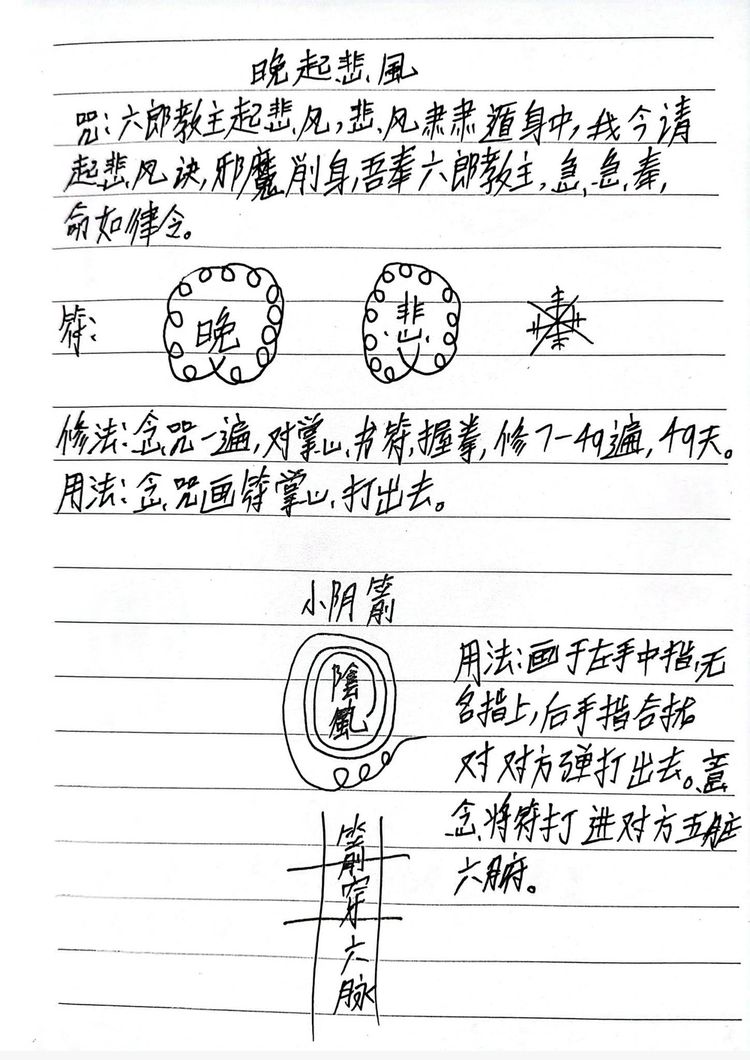 晚起悲風
咒:六郎教主起悲风,悲风肃肃遁身中,我今请
起悲风诀,邪魔削身,吾奉六郎教主,急急奉,
命如律令。
符:
晚
悲
修法:念咒一遍,对掌心书符,握拳,修7一49遍,49天。
用法:念咒画符掌心,打出去。
小阴箭
陰風
用法:画于左手中指,无
名指上,后手指合拢
对对方弹打出去。意
念将符打进对方五脏
六腑。
箭穿六脉